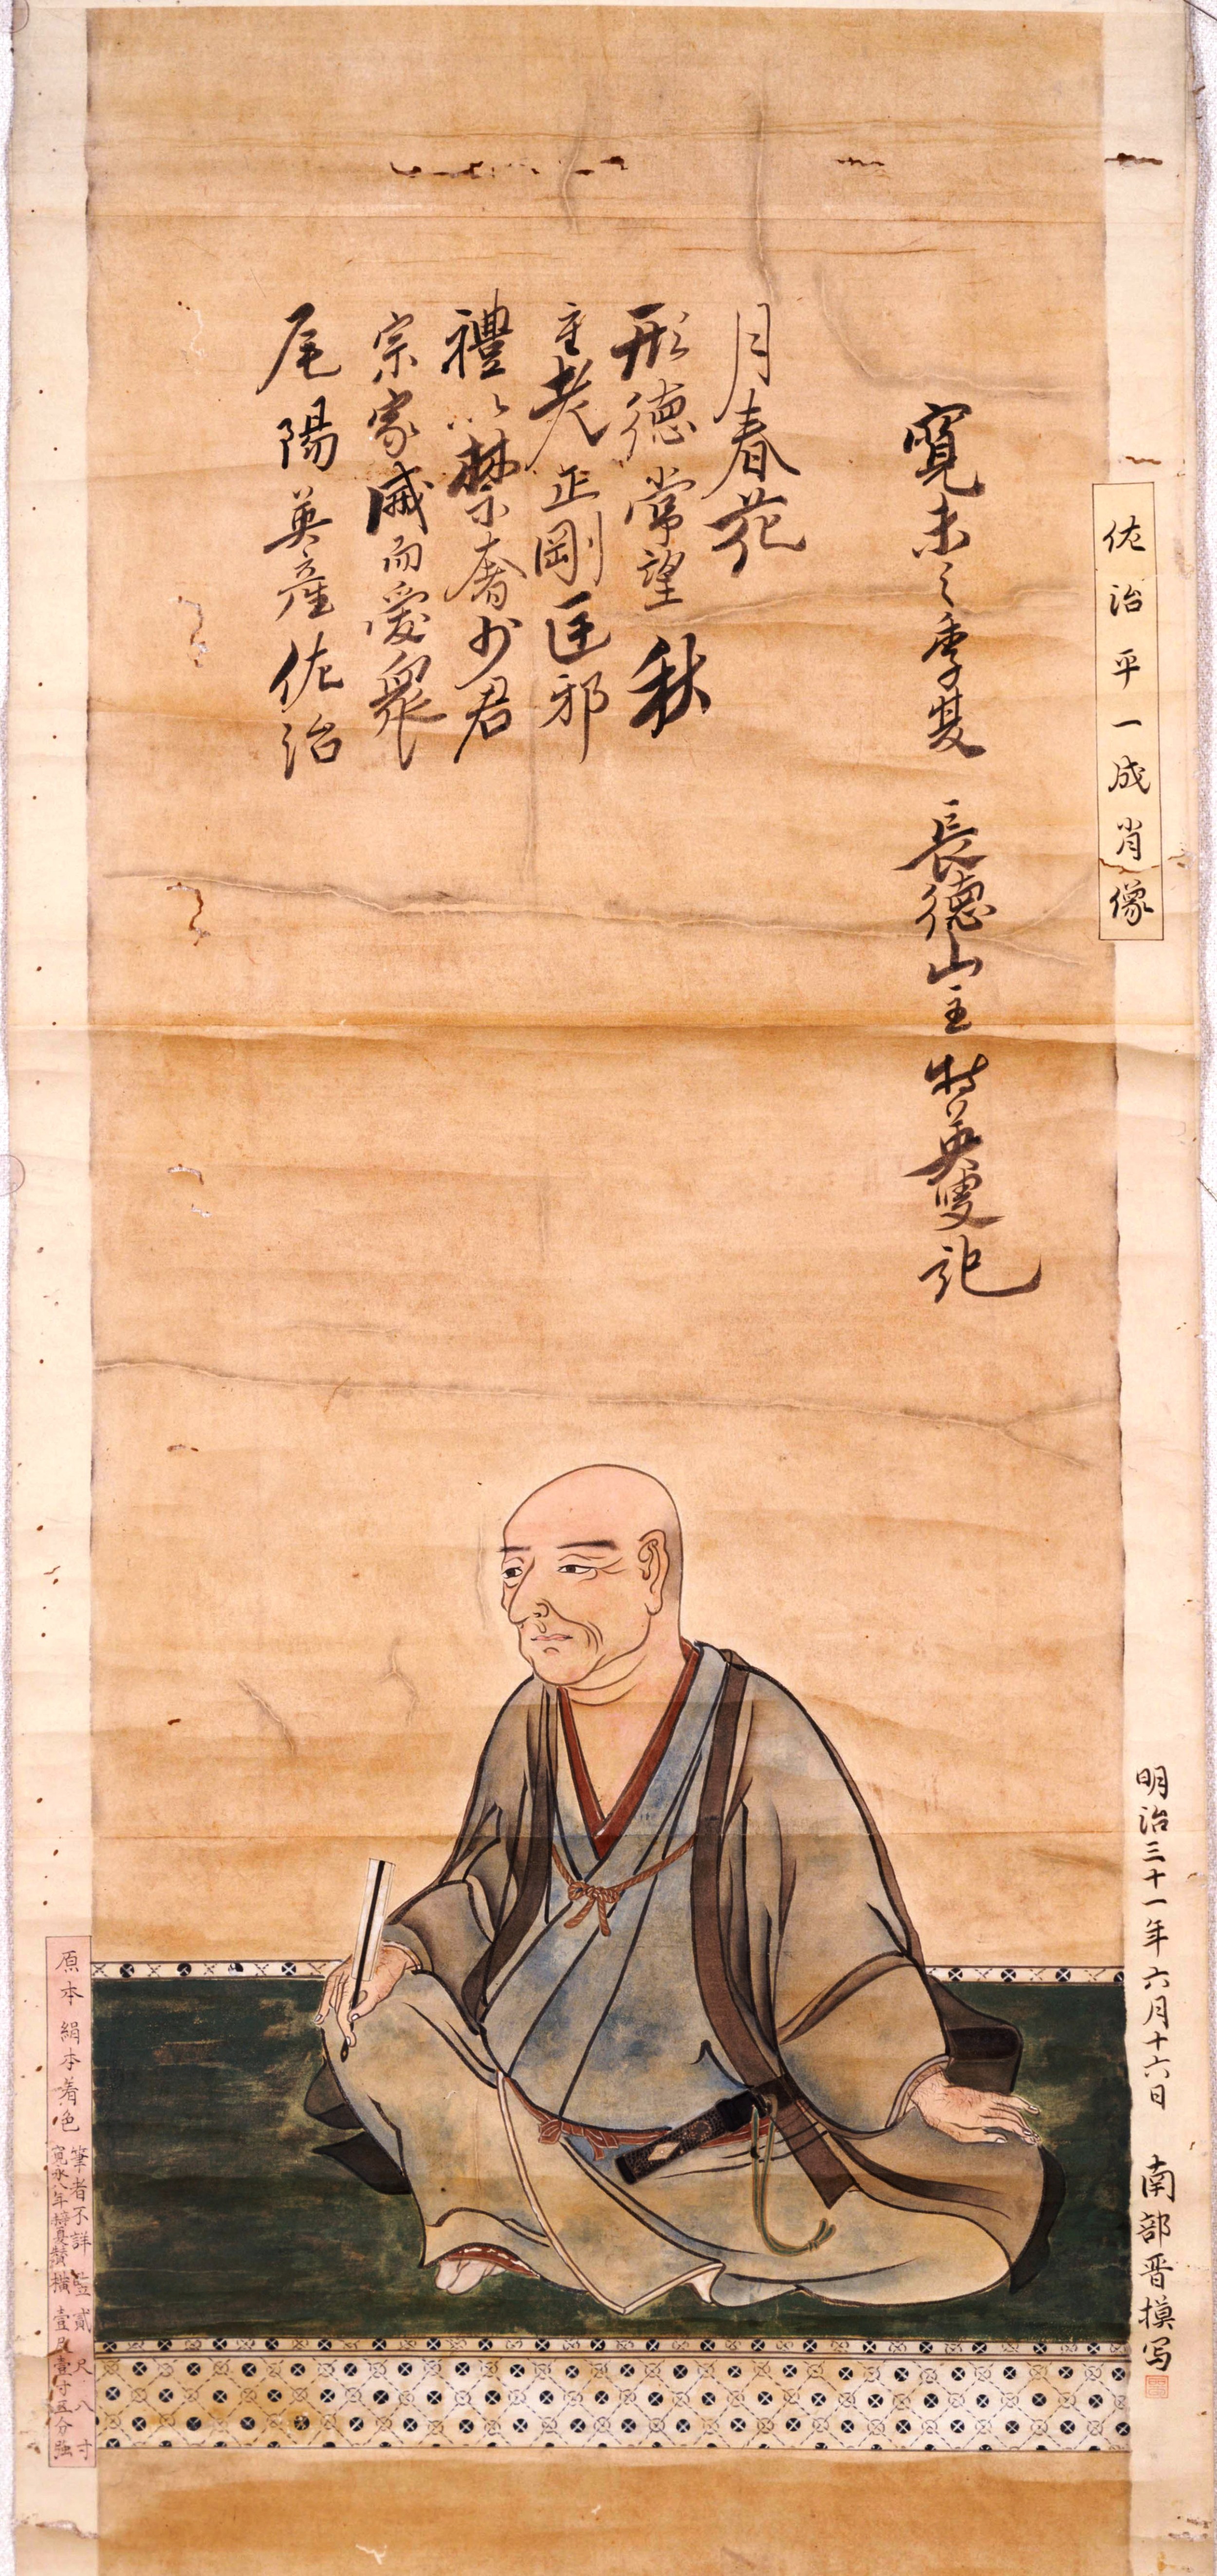 佐治平一成肖像
尾陽英産佐治
宗家威而愛衆
禮以禁奢少君
主老正剛匡邪
形德常望秋
月春花
寛未之季夏 長德山主特英叟記
明治三十一年六月十六日 南部晋摸写
原本絹本着色
筆者不詳 竪貳尺八寸
寛永八年 夏賛 横壹尺壹寸五分強